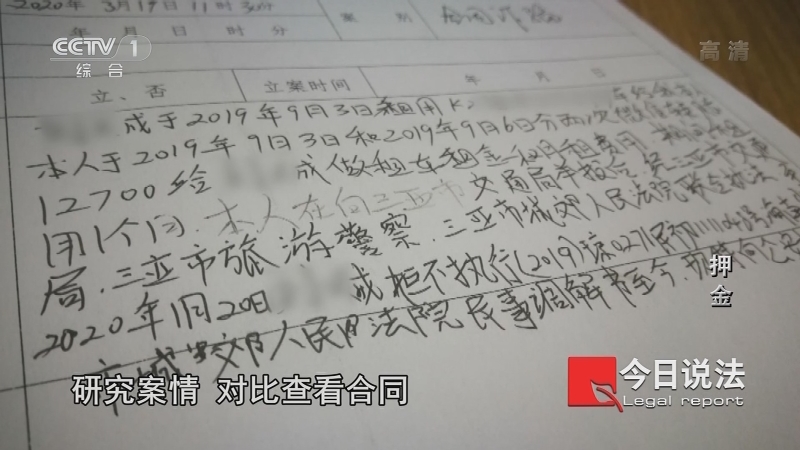 2020年 3月19日 11时30分
案 别
合同诈骗
年 月 日 时 分
CCTV 1
综合
高清
立、否
立案时间
年 月 日
成于2019年9月3日租用K
本人于2019年9月3日和2019年9月6日分两次微信转账
12700给 成做租车租金一切月租费用
用1个月.本人在向三亚市交通局举报
局.三亚市旅游警察.三亚市城郊人民法院联合执法
2020年1月20日 成拒不执行(2019)琼0271民初11110号海南
市城郊人民法院民事调解书至今.
押金
研究案情 对比查看合同
今日说法
Legal report